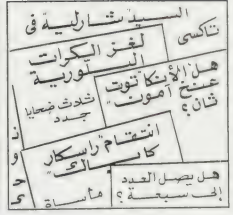 السيد شارلية في
تاكسى
لغز الكرات
البللورية
هل الأنكا توت
عنخ آمون
ثان؟
ثلاث ضحايا
جدد
انتقام راسكار
كاباك
هل يصل العدد
إلى سبعة؟
مأساة